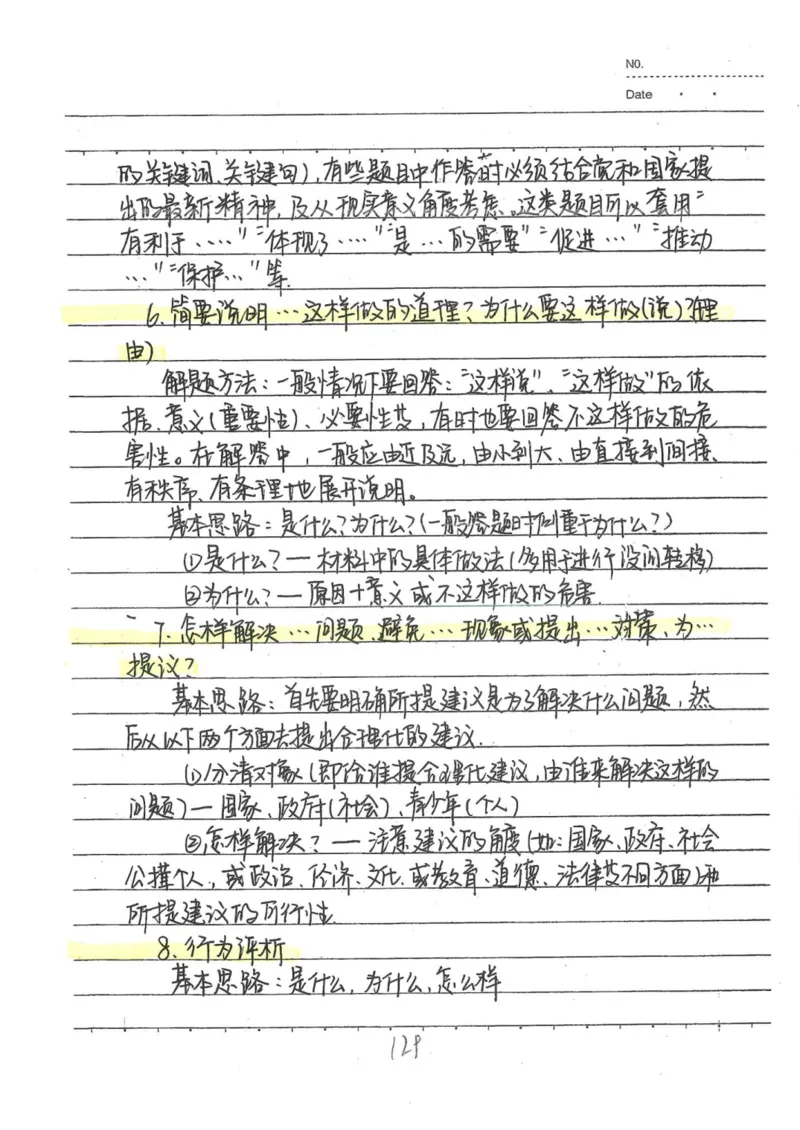 NO.
Date
的关键词、关键句),有些题目中作答时必须结合党和国家提
出的最新精神,及从现实意义角度考虑。这类题目可以套用"
有利于……""体现了……""是…的需要""促进…""推动
…""保护…"等.
6.简要说明…这样做的道理?为什么要这样做(说)?(理
由)
解题方法:一般情况下要回答:"这样说"、"这样做"的依
据、意义(重要性)、必要性等,有时也要回答不这样做的危
害性。在解答中,一般应由近及远,由小到大、由直接到间接、
有秩序、有条理地展开说明。
基本思路:是什么?为什么?(一般答题时侧重于为什么?)
①是什么?—材料中的具体做法(多用于进行设问转移)
②为什么?—原因+意义或不这样做的危害.
7.怎样解决…问题、避免…现象或提出…对策、为…
提议?
基本思路:首先要明确所提建议是为了解决什么问题,然
后从以下两个方面去提出合理化的建议.
①分清对象(即给谁提合理化建议,由谁来解决这样的
问题)—国家、政府(社会)、青少年(个人)
②怎样解决?—注意建议的角度(如:国家、政府、社会
公揮个人,或政治、经济、文化、或教育、道德、法律等不同方面)和
所提建议的可行性.
8.行为评析
基本思路:是什么,为什么,怎么样
129